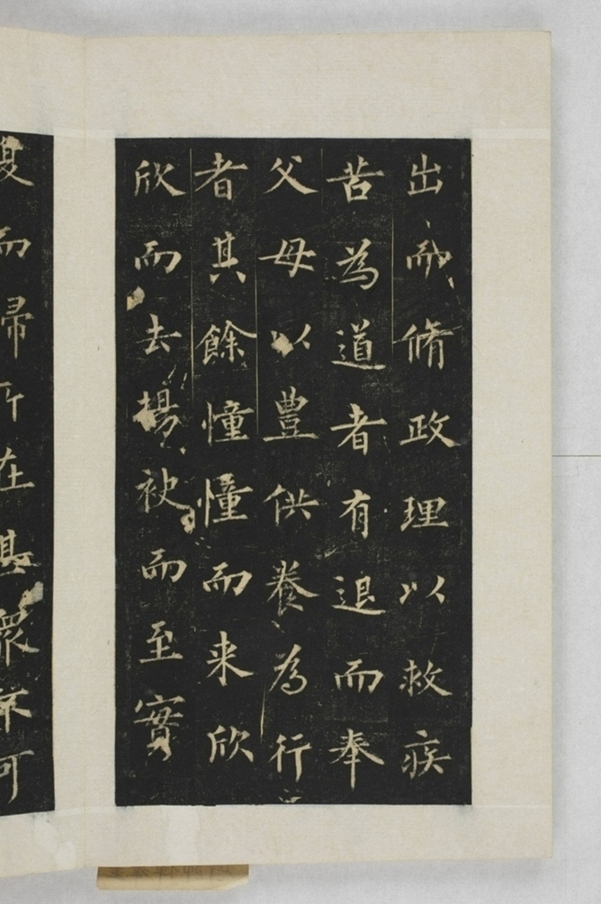 出而脩政理以救疾
苦為道者有退而奉
父母以豊供養為行
者其餘憧憧而来欣
欣而去揚袂而至實
而歸所在其眾不可